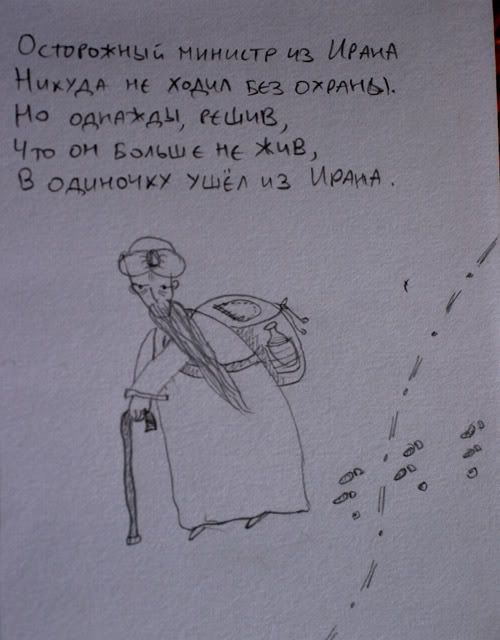 Осторожный министр из Ирана
Никуда не ходил без охраны.
Но однажды, решив,
Что он больше не жив,
В одиночку ушёл из Ирана.